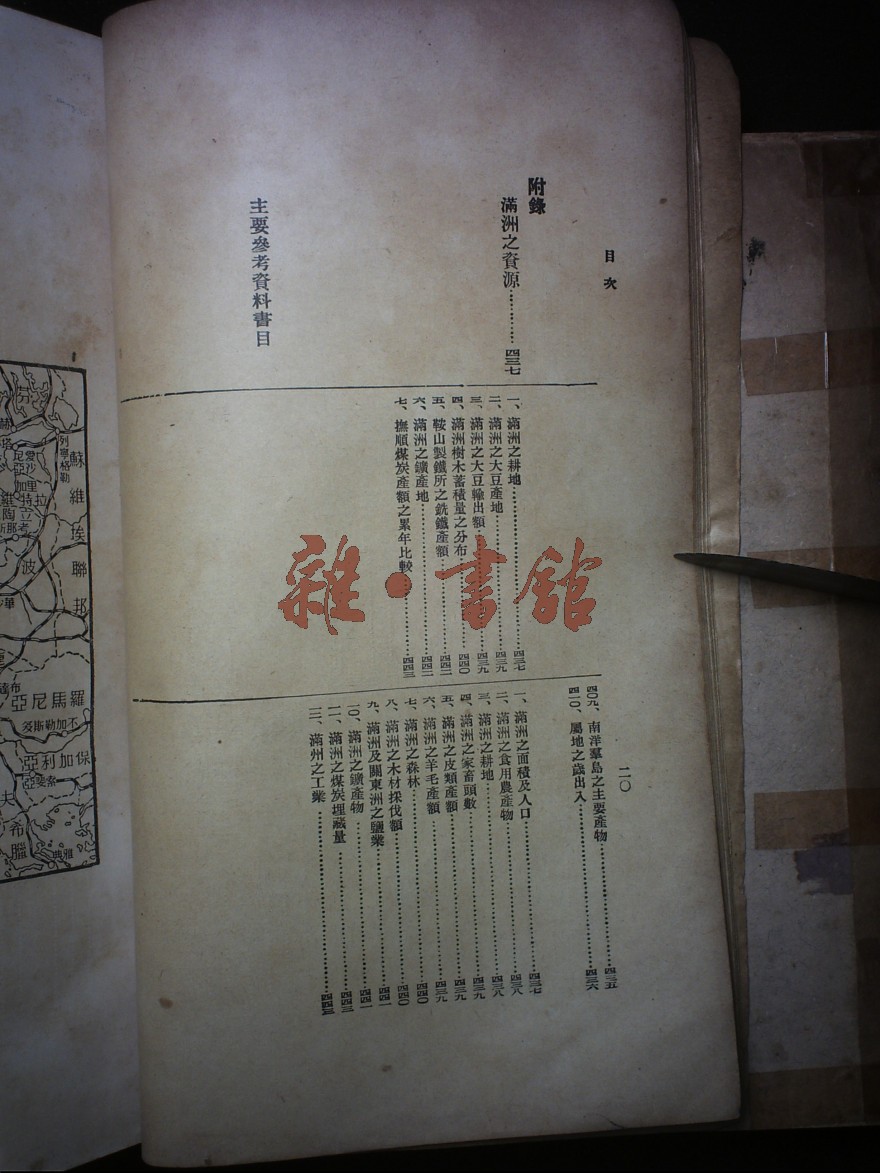 目次
二〇
附錄
滿洲之資源…………四三七
一、滿洲之耕地…………四三七
二、滿洲之大豆產地…………四三九
三、滿洲之大豆輸出額…………四三九
四、滿洲樹木蓄積量之分布…………四四〇
五、鞍山製鐵所之銑鐵產額…………四四二
六、滿洲之鑛產地…………四四二
七、撫順煤炭產額之累年比較…………四四三
四〇九、南洋羣島之主要產物…………四三五
四一〇、屬地之歲出入…………四三六
一、滿洲之面積及人口…………四三七
二、滿洲之食用農產物…………四三八
三、滿洲之耕地…………四三八
四、滿洲之家畜頭數…………四三九
五、滿洲之皮類產額…………四三九
六、滿洲之羊毛產額…………四三九
七、滿洲之森林…………四四〇
八、滿洲之木材採伐額…………四四〇
九、滿洲及關東洲之鹽業…………四四一
一〇、滿洲之鑛產物…………四四一
一一、滿洲之煤炭埋藏量…………四四三
一二、滿州之工業…………四四三
主要參考資料書目
蘇維埃聯邦
列寧格勒
愛沙尼亞
拉特
立陶
波
羅馬尼亞
不加勒斯多
保加利亞
索斐亞
希臘
雅典
雜·書館